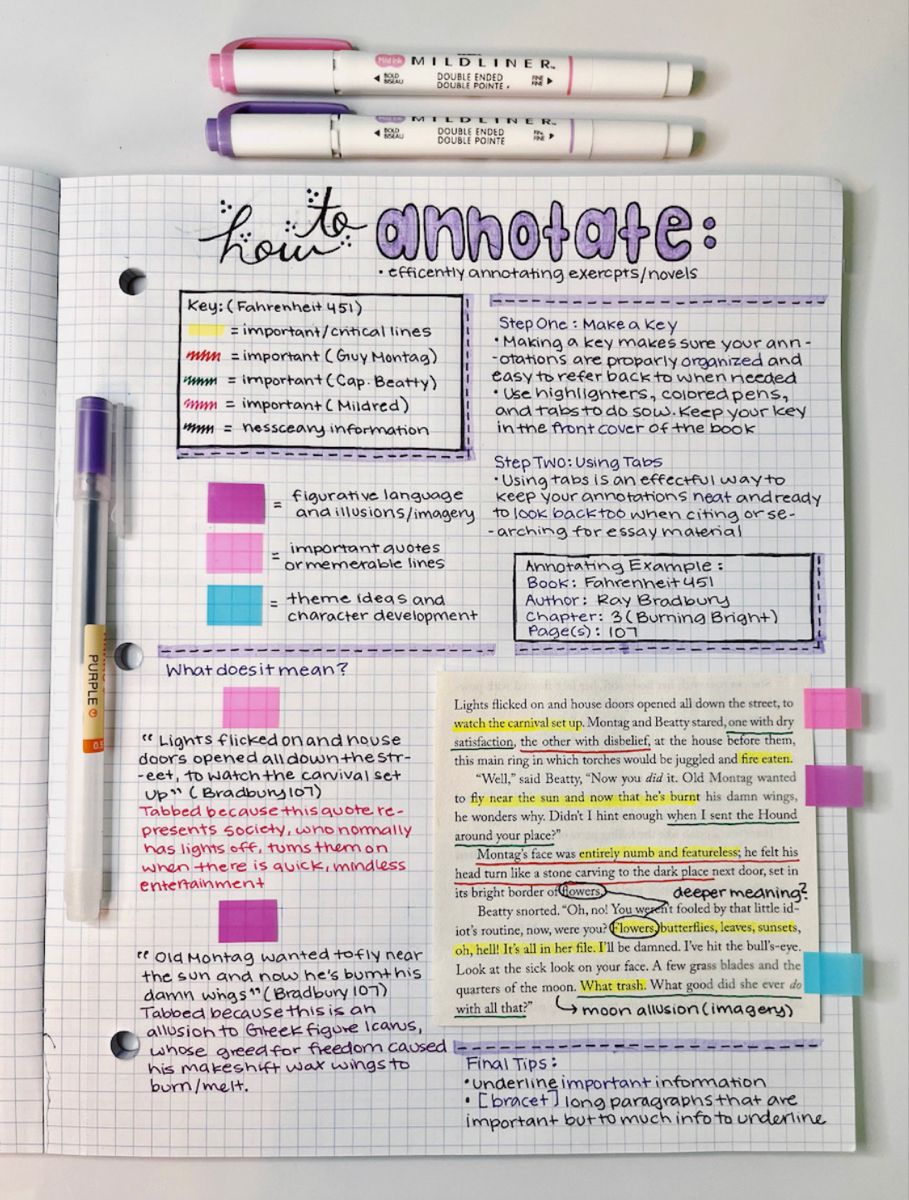 Mild ink MILDLINER™
◀ BOLD BISEAU DOUBLE ENDED FINE FINE ▶
DOUBLE POINTE
MILDLINER™
◀ BOLD BISEAU DOUBLE ENDED FINE FINE ▶
DOUBLE POINTE
how to annotate:
• efficently annotating exercpts/novels
Key: (Fahrenheit 451)
= important/critical lines
= important (Guy Montag)
= important (Cap. Beatty)
= important (Mildred)
= nessceary information
Step One: Make a Key
• Making a key makes sure your ann-
-otations are proparly organized and
easy to refer back to when needed
• Use highlighters, colored pens,
and tabs to do sow. Keep your key
in the front cover of the book
Step Two: Using Tabs
• Using tabs is an effectful way to
keep your annotations neat and ready
to look back too when citing or se-
-arching for essay material
= figurative language
and illusions/imagery
= important quotes
or memerable lines
= theme ideas and
character development
Annotating Example:
Book: Fahrenheit 451
Author: Ray Bradbury
Chapter: 3 (Burning Bright)
Page(s): 107
PURPLE
0.5
What does it mean?
"Lights flicked on and house
doors opened all down the str-
-eet, to watch the carvival set
up" (Bradbury 107)
Tabbed because this quote re-
presents society, who normally
has lights off, turns them on
when there is quick, mindless
entertainment
"Old Montag wanted to fly near
the sun and now he's burnt his
damn wings" (Bradbury 107)
Tabbed because this is an
allusion to Greek figure Icarus,
whose greed for freedom caused
his makeshift wax wings to
burn/melt.
Lights flicked on and house doors opened all down the street, to
watch the carnival set up. Montag and Beatty stared, one with dry
satisfaction, the other with disbelief, at the house before them,
this main ring in which torches would be juggled and fire eaten.
"Well," said Beatty, "Now you did it. Old Montag wanted
to fly near the sun and now that he's burnt his damn wings,
he wonders why. Didn't I hint enough when I sent the Hound
around your place?"
Montag's face was entirely numb and featureless; he felt his
head turn like a stone carving to the dark place next door, set in
its bright border of flowers.
deeper meaning?
Beatty snorted. "Oh, no! You weren't fooled by that little id-
iot's routine, now, were you? Flowers, butterflies, leaves, sunsets,
oh, hell! It's all in her file. I'll be damned. I've hit the bull's-eye.
Look at the sick look on your face. A few grass blades and the
quarters of the moon. What trash. What good did she ever do
with all that?"
moon allusion (imagery)
Final Tips:
• underline important information
• [bracet] long paragraphs that are
important but to much info to underline